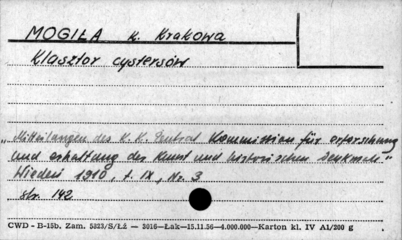 MOGIŁA k. Krakowa
Klasztor cystersów
„Mitteilungen des K. K. Zentral Kommission für erforschung
und erhaltung der Kunst und historischen Denkmale"
Wiedeń 1910, t. IX, Nr. 3
str. 142
CWD - B-15b. Zam. 5823/S/Łż — 3016—Łak—15.11.56—4.000.000—Karton kl. IV A1/200 g